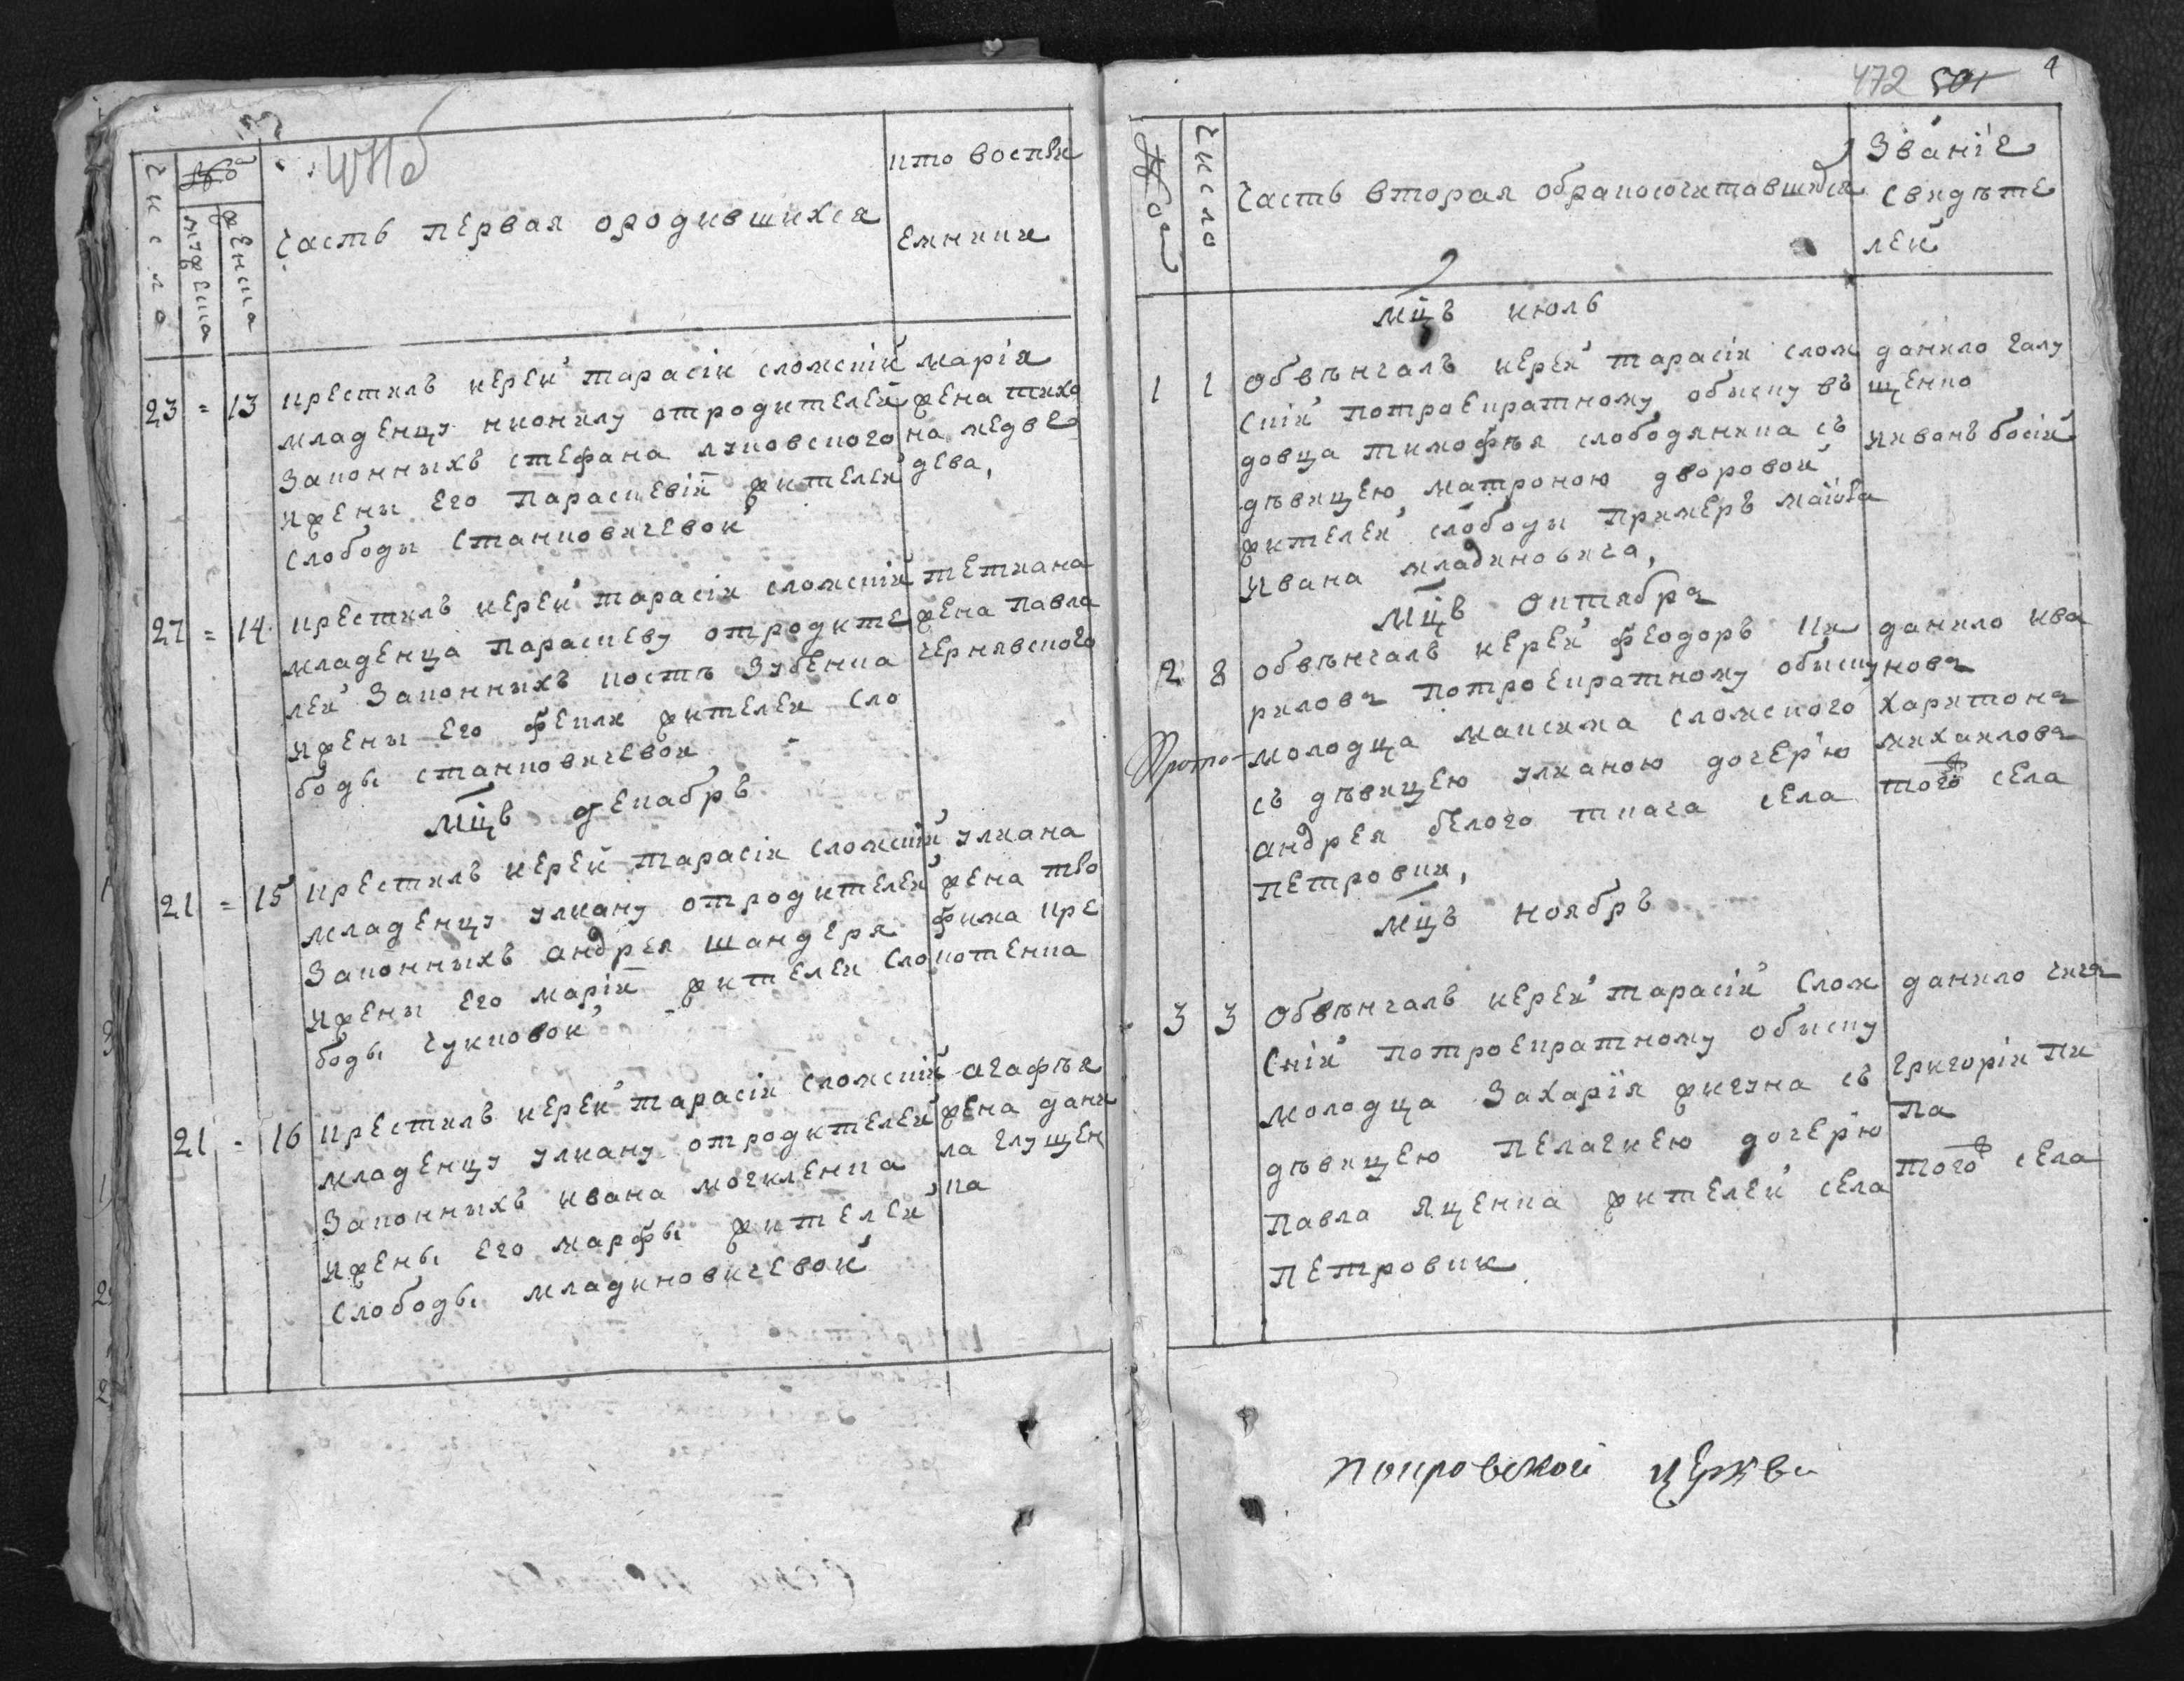 Числа
мужеска
женска
Часть первая ородившихся
кто воспри
емники
23 = 13
крестилъ иерей тарасiи сломскiй
младенцу нионилу отродителей
законныхъ стефана
ижены его параскевiи жителей
слободы станковичевой
марiя
жена тихо
на медве
дева,
27 = 14
крестилъ иерей тарасiи сломскiй
младенца параскеву отродите
лей законныхъ костъ зубенка
ижены его феклы жителей сло
боды станковичевой
тетиана
жена павла
чернявского
мцъ декабръ
21 = 15
крестилъ иерей тарасiи сломскiй
младенцу улиану отродителей
законныхъ андрея шандеря
ижены его марiи жителей сло
боды чуиковой
улиана
жена тво
фима кре
котенка
21 = 16
крестилъ иерей тарасiи сломскiй
младенцу улиану отродителей
законныхъ ивана могиленка
ижены его марфы жителей
слободы младиновичевой
агафья
жена дани
ла глущен
ка
472
4
Число
Часть вторая обракосочитавшихся
Званiе
свидъте
лей
мцъ июль
1 1
обвънчалъ иерей тарасiи слом
скiй потроекратному обыску въ
довца тимофъя слободяника съ
дъвицею матроною дворовой
жителей слободы примеръ маiора
Ивана младиновича,
данило галу
щенко
Иванъ босiй
Мцъ октября
2 8
обвънчалъ иерей феодоръ ки
риловъ потроекратному обыску
молодца максима сломского
съ дъвицею улианою дочерю
андрея белого ткача села
петровки,
данило ива
новъ
харитонъ
михаиловъ
тогожъ села
мцъ ноябръ
3 3
Обвънчалъ иерей тарасiй Слом
скiй потроекратному обыску
молодца Захарiя жигуна съ
дъвицею пелагиею дочерю
павла яценка жителей села
петровки
данило чига
григорiй пи
па
тогожъ села
покровской церкви